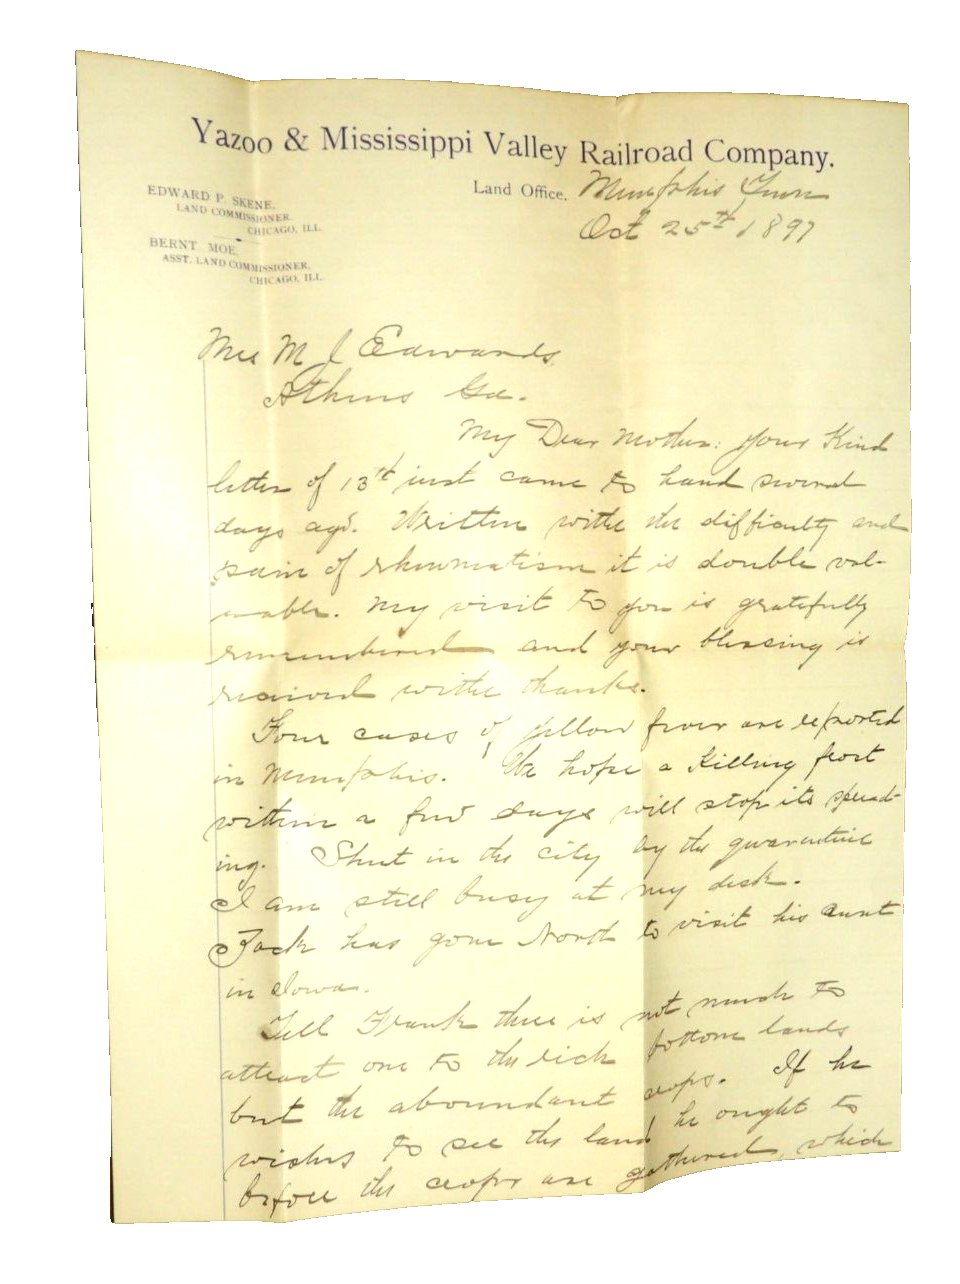 Yazoo & Mississippi Valley Railroad Company.
Land Office. Memphis Tenn
Oct 25th 1897
EDWARD P. SKENE,
LAND COMMISSIONER.
CHICAGO, ILL.
BERNT MOE,
ASST. LAND COMMISSIONER,
CHICAGO, ILL.
Mrs M J Edwards
Athens Ga.
My Dear Mother: Your Kind
letter of 13th inst came to hand several
days ago. Written withe the difficulty and
pain of rheumatism it is double val-
uable. My visit to you is gratefully
remembered and your blessing is
received withe thanks.
Four cases of yellow fever are reported
in Memphis. We hope a Killing frost
within a few days will stop its spread-
ing. Shut in the city by the quarantine
I am still busy at my desk.
Jack has gone North to visit his aunt
in Iowa.
Tell Frank there is not much to
attract one to the rich bottom lands
but the aboundant crops. If he
wishes to see the land he ought to
before the crops are gathered, which